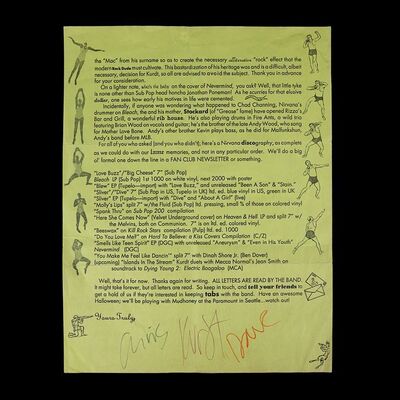 the "Mac" from his surname so as to create the necessary "rock" effect that the
modern Rock Dude must cultivate. This bastardization of his heritage was and is a difficult, albeit
necessary, decision for Kurdt, so all are advised to avoid the subject. Thank you in advance
for your consideration.
On a lighter note, who's the baby on the cover of Nevermind, you ask? Well, that little tyke
is none other than Sub Pop head honcho Jonathan Poneman! As he scurries for that elusive
dollar, one sees how early his motives in life were cemented.
Incidentally, if anyone was wondering what happened to Chad Channing, Nirvana's
drummer on Bleach, he and his mother, Stockard (of "Grease" fame) have opened Rizzo's
Bar and Grill, a wonderful rib house. He's also playing drums in Fire Ants, a wild trio
featuring Brian Wood on vocals and guitar; he's the brother of the late Andy Wood, who sang
for Mother Love Bone. Andy's other brother Kevin plays bass, as he did for Malfunkshun,
Andy's band before MLB.
For all of you who asked (and you who didn't), here's a Nirvana discography, as complete
as we could do with our memories, and not in any particular order. We'll do a big
ol' formal one down the line in a FAN CLUB NEWSLETTER or something.
"Love Buzz"/"Big Cheese" 7" (Sub Pop)
Bleach LP (Sub Pop) 1st 1000 on white vinyl, next 2000 with poster
"Blew" EP (Tupelo—import) with "Love Buzz," and unreleased "Been A Son" & "Stain."
"Sliver"/"Dive" 7" (Sub Pop in US, Tupelo in UK) ltd. ed. blue vinyl in US, green in UK
"Sliver" EP (Tupelo—import) with "Dive" and "About A Girl" (live)
"Molly's Lips" split 7" w/the Fluid (Sub Pop) ltd. pressing, small % of those on colored vinyl
"Spank Thru" on Sub Pop 200 compilation
"Here She Comes Now" (Velvet Underground cover) on Heaven & Hell LP and split 7" w/
the Melvins, both on Communion. 7" is on tons of colored vinyl.
"Beeswax" on Kill Rock Stars compilation (Pulp) ltd. 1000
"Do You Love Me?" on Hard To Believe: a Kiss Covers Compilation (C/Z)
"Smells Like Teen Spirit" EP (DGC) with unreleased "Aneurysm" & "Even in His Youth"
Nevermind (DGC)
"You Make Me Feel Like Dancin'" split 7" with Dinah Shore Jr. (Ben Dover)
(upcoming) "Islands In The Stream" Kurdt duets with Mecca Normal's Jean Smith on
soundtrack to Dying Young 2: Electric Boogaloo (MCA)
Well, that's it for now. Thanks again for writing. ALL LETTERS ARE READ BY THE BAND.
It might take forever, but all letters are read. So keep in touch, and tell your friends to
get a hold of us if they're interested in keeping tabs with the band. Have an awesome
Halloween; we'll be playing with Mudhoney at the Paramount in Seattle...watch out!
Yours Truly,
Chris Kurdt Dave